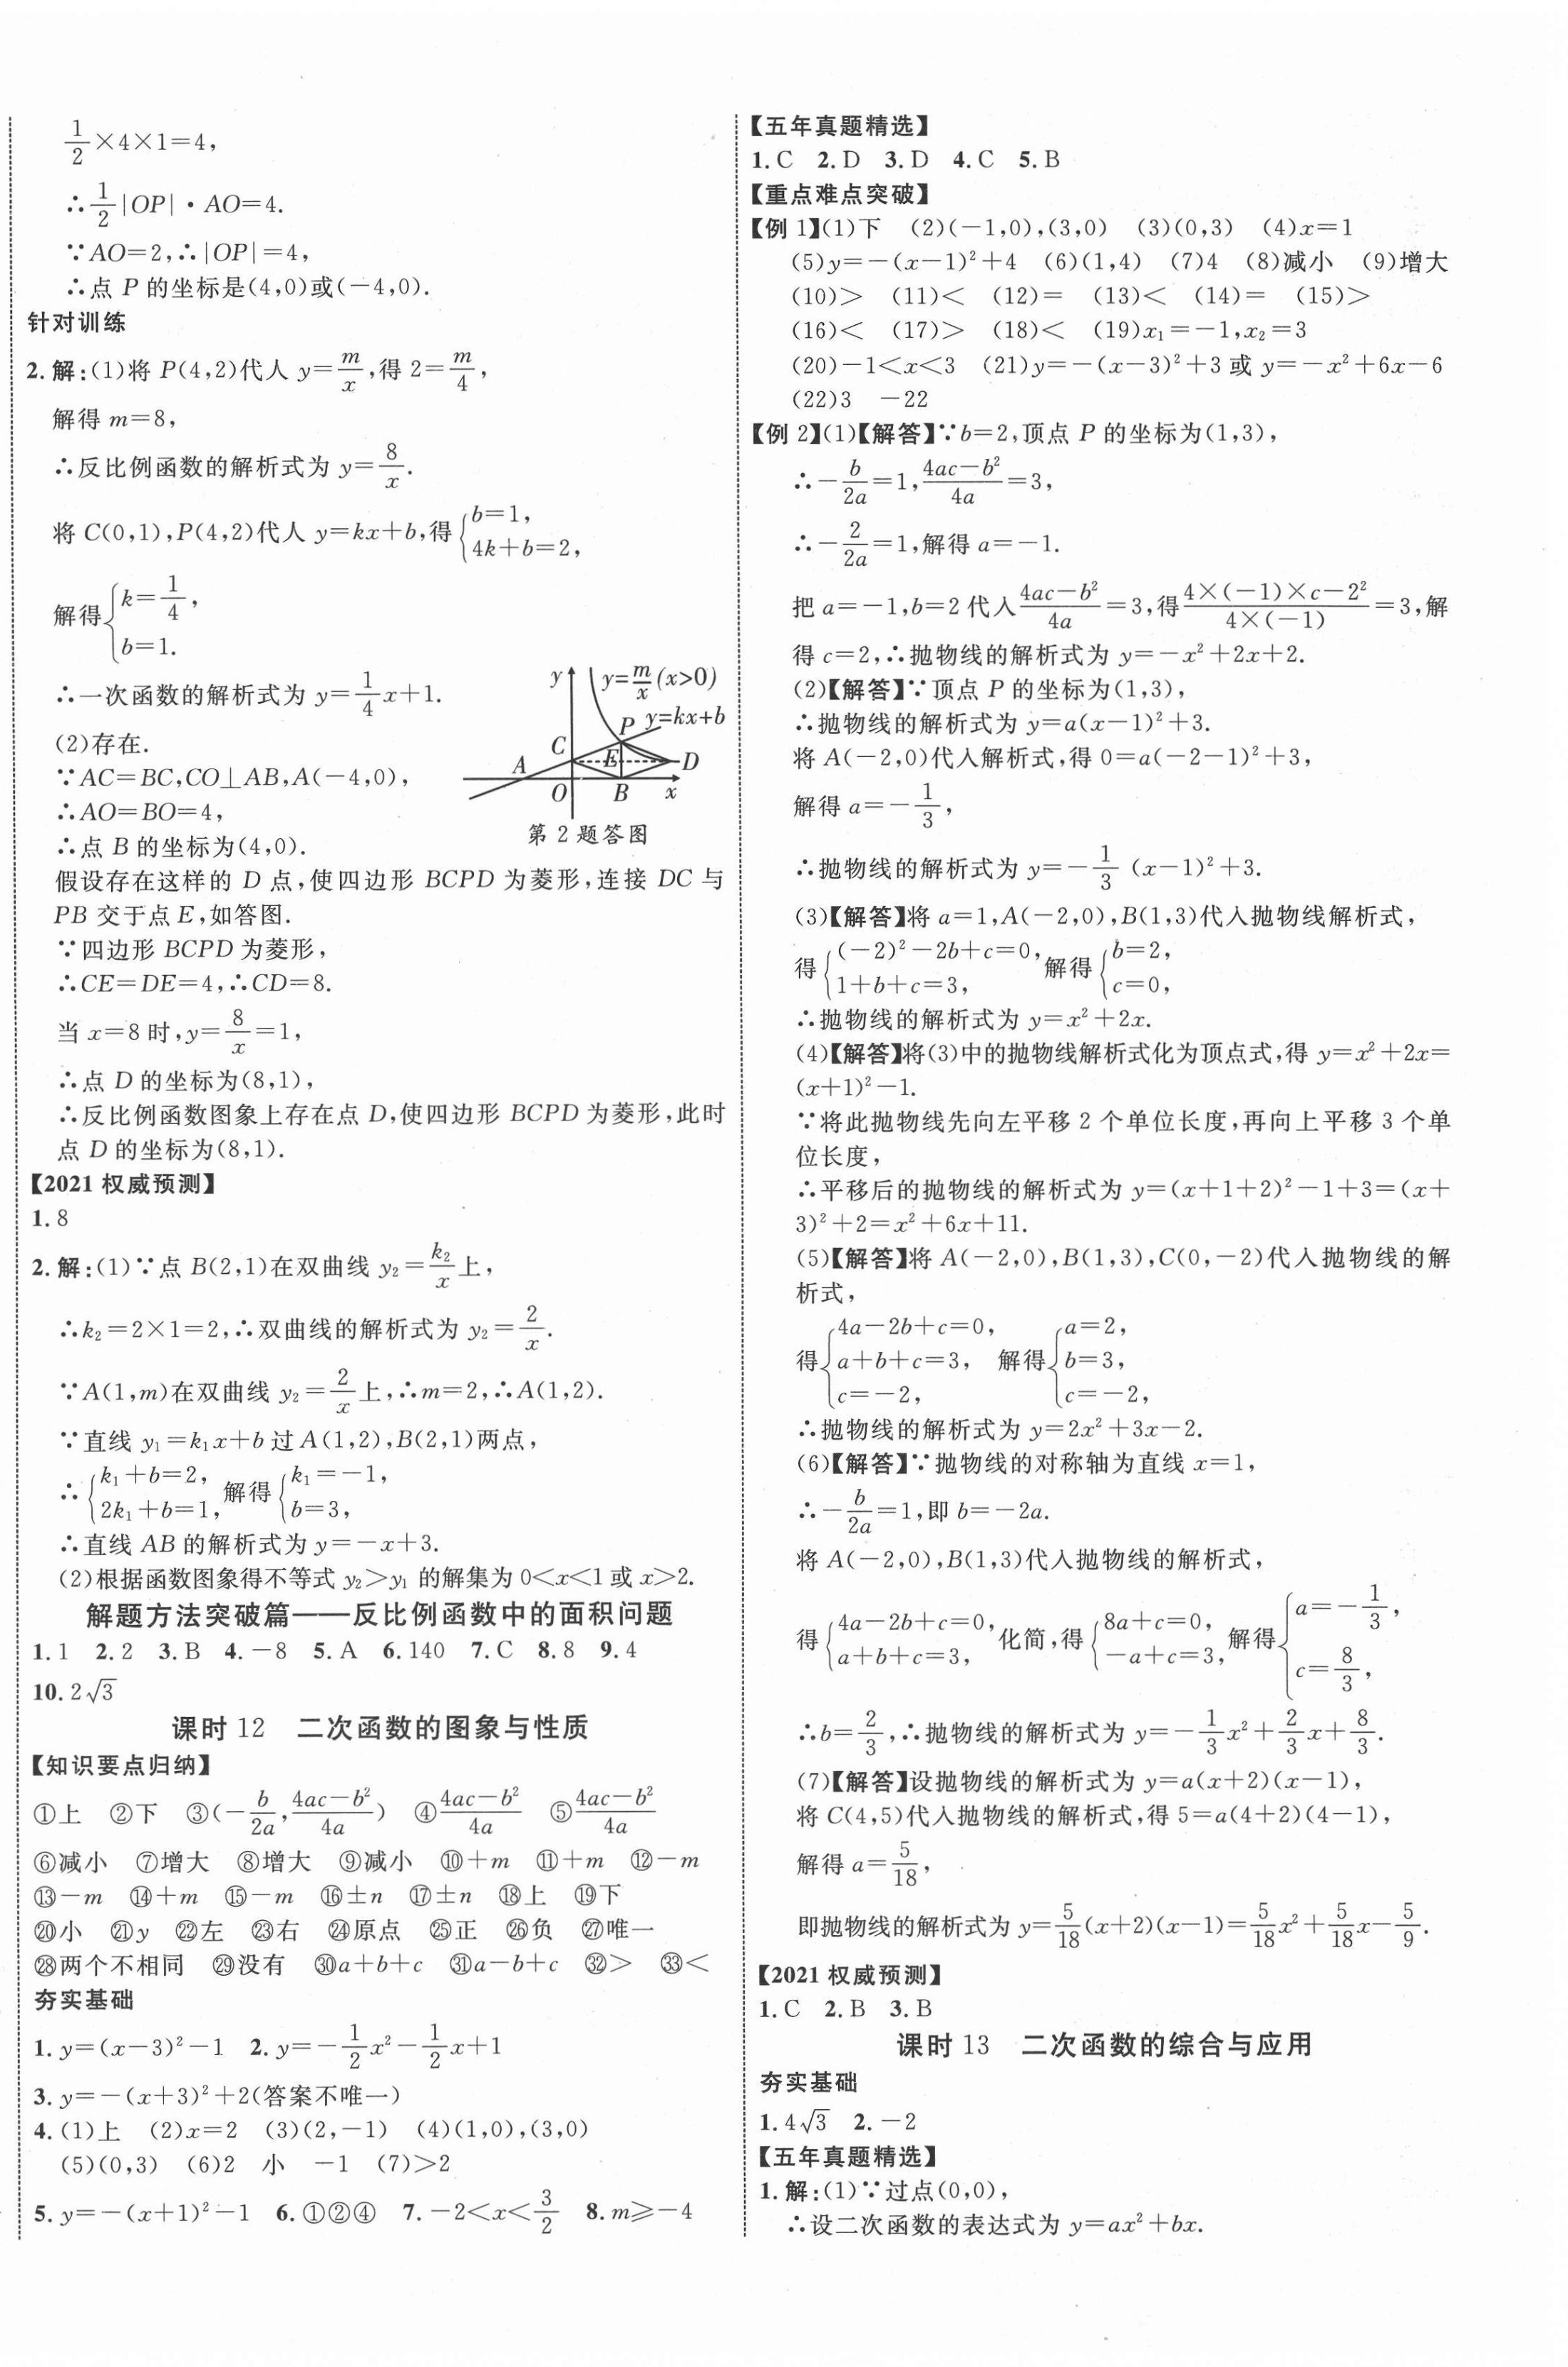 1/2×4×1=4,
∴1/2|OP|·AO=4.
∵AO=2,∴|OP|=4,
∴点 P 的坐标是(4,0)或(-4,0).
针对训练
2.解:(1)将 P(4,2)代人 y=m/x,得 2=m/4,
解得 m=8,
∴反比例函数的解析式为 y=8/x.
将 C(0,1),P(4,2)代人 y=kx+b,得{b=1, 4k+b=2,
解得{k=1/4, b=1.
∴一次函数的解析式为 y=1/4x+1.
(2)存在.
∵AC=BC,CO⊥AB,A(-4,0),
∴AO=BO=4,
∴点 B 的坐标为(4,0).
y y=m/x(x>0)
P y=kx+b
C E D
A
O B x
第 2 题答图
假设存在这样的 D 点,使四边形 BCPD 为菱形,连接 DC 与
PB 交于点 E,如答图.
∵四边形 BCPD 为菱形,
∴CE=DE=4,∴CD=8.
当 x=8 时,y=8/x=1,
∴点 D 的坐标为(8,1),
∴反比例函数图象上存在点 D,使四边形 BCPD 为菱形,此时
点 D 的坐标为(8,1).
【2021 权威预测】
1.8
2.解:(1)∵点 B(2,1)在双曲线 y₂=k₂/x上,
∴k₂=2×1=2,∴双曲线的解析式为 y₂=2/x.
∵A(1,m)在双曲线 y₂=2/x上,∴m=2,∴A(1,2).
∵直线 y₁=k₁x+b 过 A(1,2),B(2,1)两点,
∴{k₁+b=2, 2k₁+b=1, 解得{k₁=-1, b=3,
∴直线 AB 的解析式为 y=-x+3.
(2)根据函数图象得不等式 y₂>y₁ 的解集为 0<x<1 或 x>2.
解题方法突破篇——反比例函数中的面积问题
1.1 2.2 3.B 4.-8 5.A 6.140 7.C 8.8 9.4
10.2√3
课时 12 二次函数的图象与性质
【知识要点归纳】
①上 ②下 ③(-b/2a,(4ac-b²)/4a) ④(4ac-b²)/4a ⑤(4ac-b²)/4a
⑥减小 ⑦增大 ⑧增大 ⑨减小 ⑩+m ⑪+m ⑫-m
⑬-m ⑭+m ⑮-m ⑯±n ⑰±n ⑱上 ⑲下
⑳小 ㉑y ㉒左 ㉓右 ㉔原点 ㉕正 ㉖负 ㉗唯一
㉘两个不相同 ㉙没有 ㉚a+b+c ㉛a-b+c ㉜> ㉝<
夯实基础
1.y=(x-3)²-1 2.y=-1/2x²-1/2x+1
3.y=-(x+3)²+2(答案不唯一)
4.(1)上 (2)x=2 (3)(2,-1) (4)(1,0),(3,0)
(5)(0,3) (6)2 小 -1 (7)>2
5.y=-(x+1)²-1 6.①②④ 7.-2<x<3/2 8.m≥-4
【五年真题精选】
1.C 2.D 3.D 4.C 5.B
【重点难点突破】
【例 1】(1)下 (2)(-1,0),(3,0) (3)(0,3) (4)x=1
(5)y=-(x-1)²+4 (6)(1,4) (7)4 (8)减小 (9)增大
(10)> (11)< (12)= (13)< (14)= (15)>
(16)< (17)> (18)< (19)x₁=-1,x₂=3
(20)-1<x<3 (21)y=-(x-3)²+3 或 y=-x²+6x-6
(22)3 -22
【例 2】(1)【解答】∵b=2,顶点 P 的坐标为(1,3),
∴-b/2a=1,(4ac-b²)/4a=3,
∴-2/2a=1,解得 a=-1.
把 a=-1,b=2 代人(4ac-b²)/4a=3,得(4×(-1)×c-2²)/(4×(-1))=3,解
得 c=2,∴抛物线的解析式为 y=-x²+2x+2.
(2)【解答】∵顶点 P 的坐标为(1,3),
∴抛物线的解析式为 y=a(x-1)²+3.
将 A(-2,0)代人解析式,得 0=a(-2-1)²+3,
解得 a=-1/3,
∴抛物线的解析式为 y=-1/3(x-1)²+3.
(3)【解答】将 a=1,A(-2,0),B(1,3)代人抛物线解析式,
得{(-2)²-2b+c=0, 1+b+c=3, 解得{b=2, c=0,
∴抛物线的解析式为 y=x²+2x.
(4)【解答】将(3)中的抛物线解析式化为顶点式,得 y=x²+2x=
(x+1)²-1.
∵将此抛物线先向左平移 2 个单位长度,再向上平移 3 个单
位长度,
∴平移后的抛物线的解析式为 y=(x+1+2)²-1+3=(x+
3)²+2=x²+6x+11.
(5)【解答】将 A(-2,0),B(1,3),C(0,-2)代人抛物线的解
析式,
得{4a-2b+c=0, a+b+c=3, c=-2, 解得{a=2, b=3, c=-2,
∴抛物线的解析式为 y=2x²+3x-2.
(6)【解答】∵抛物线的对称轴为直线 x=1,
∴-b/2a=1,即 b=-2a.
将 A(-2,0),B(1,3)代人抛物线的解析式,
得{4a-2b+c=0, a+b+c=3, 化简,得{8a+c=0, -a+c=3, 解得{a=-1/3, c=8/3,
∴b=2/3,∴抛物线的解析式为 y=-1/3x²+2/3x+8/3.
(7)【解答】设抛物线的解析式为 y=a(x+2)(x-1),
将 C(4,5)代人抛物线的解析式,得 5=a(4+2)(4-1),
解得 a=5/18,
即抛物线的解析式为 y=5/18(x+2)(x-1)=5/18x²+5/18x-5/9.
【2021 权威预测】
1.C 2.B 3.B
课时 13 二次函数的综合与应用
夯实基础
1.4√3 2.-2
【五年真题精选】
1.解:(1)∵过点(0,0),
∴设二次函数的表达式为 y=ax²+bx.